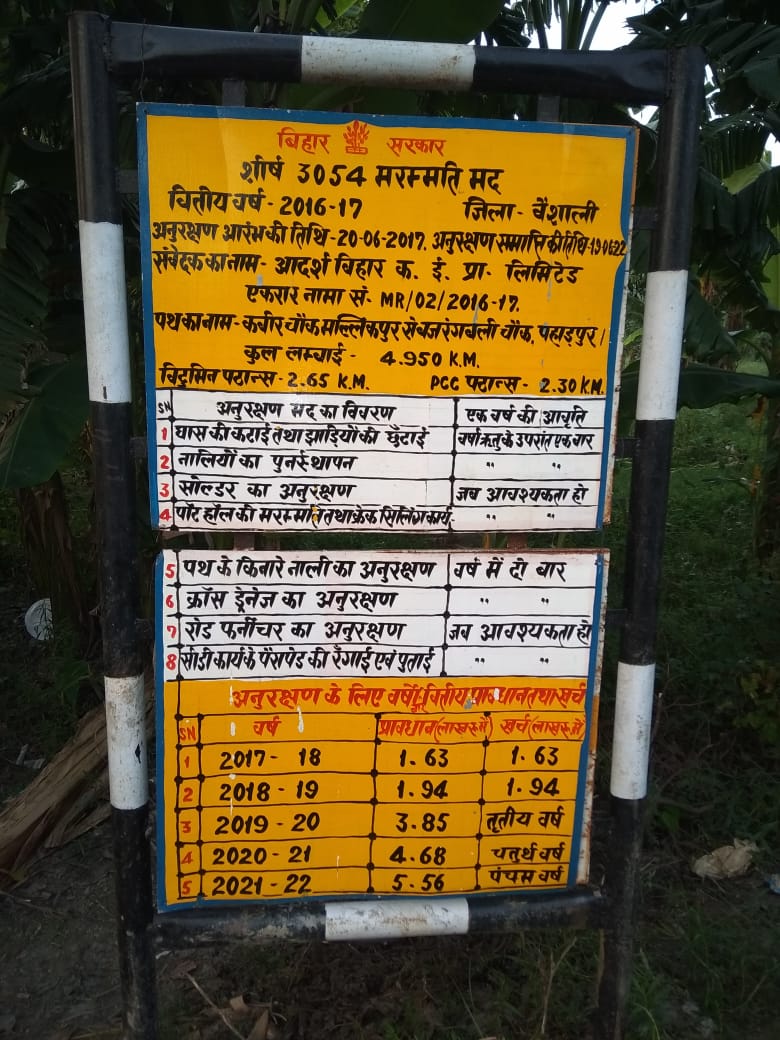 बिहार सरकार
शीर्ष 3054 मरम्मति मद
वितीय वर्ष - 2016-17 जिला - वैशाली
अनुरक्षण आरंभ की तिथि -20-06-2017, अनुरक्षण समाप्ति की तिथि-190622
संवेदक का नाम - आदर्श बिहार क. इं. प्रा- लिमिटेड
एकरार नामा सं- MR/02/2016-17.
पथ का नाम - कबीर चौक मल्लिकपुर से बजरंगबली चौक, पहाड़पुर।
कुल लम्बाई - 4.950 K.M.
विटुमिन पठान्स - 2.65 K.M. PCC पठान्स - 2.30 K.M.
SN अनुरक्षण मद का विवरण एक वर्ष की आवृति
1 घास की कटाई तथा झाड़ियों की छँटाई वर्षा ऋतु के उपरांत एक बार
2 नालियों का पुनर्स्थापन " "
3 सोल्डर का अनुरक्षण जब आवश्यकता हो
4 पौट हॉल की मरम्मति तथा क्रेक सिलिंग कार्य " "
5 पथ के किनारे नाली का अनुरक्षण वर्ष में दो बार
6 क्रॉस ड्रेनेज का अनुरक्षण " "
7 रोड फर्नीचर का अनुरक्षण जब आवश्यकता हो
8 सीडी कार्य के पैरापेड की रँगाई एवं पुताई " "
अनुरक्षण के लिए वर्षों वितीय प्रावधान तथा खर्च
SN वर्ष प्रावधान (लाख रू में) खर्च (लाख रू में)
1 2017 - 18 1.63 1.63
2 2018 - 19 1.94 1.94
3 2019 - 20 3.85 तृतीय वर्ष
4 2020 - 21 4.68 चतुर्थ वर्ष
5 2021 - 22 5.56 पंचम वर्ष